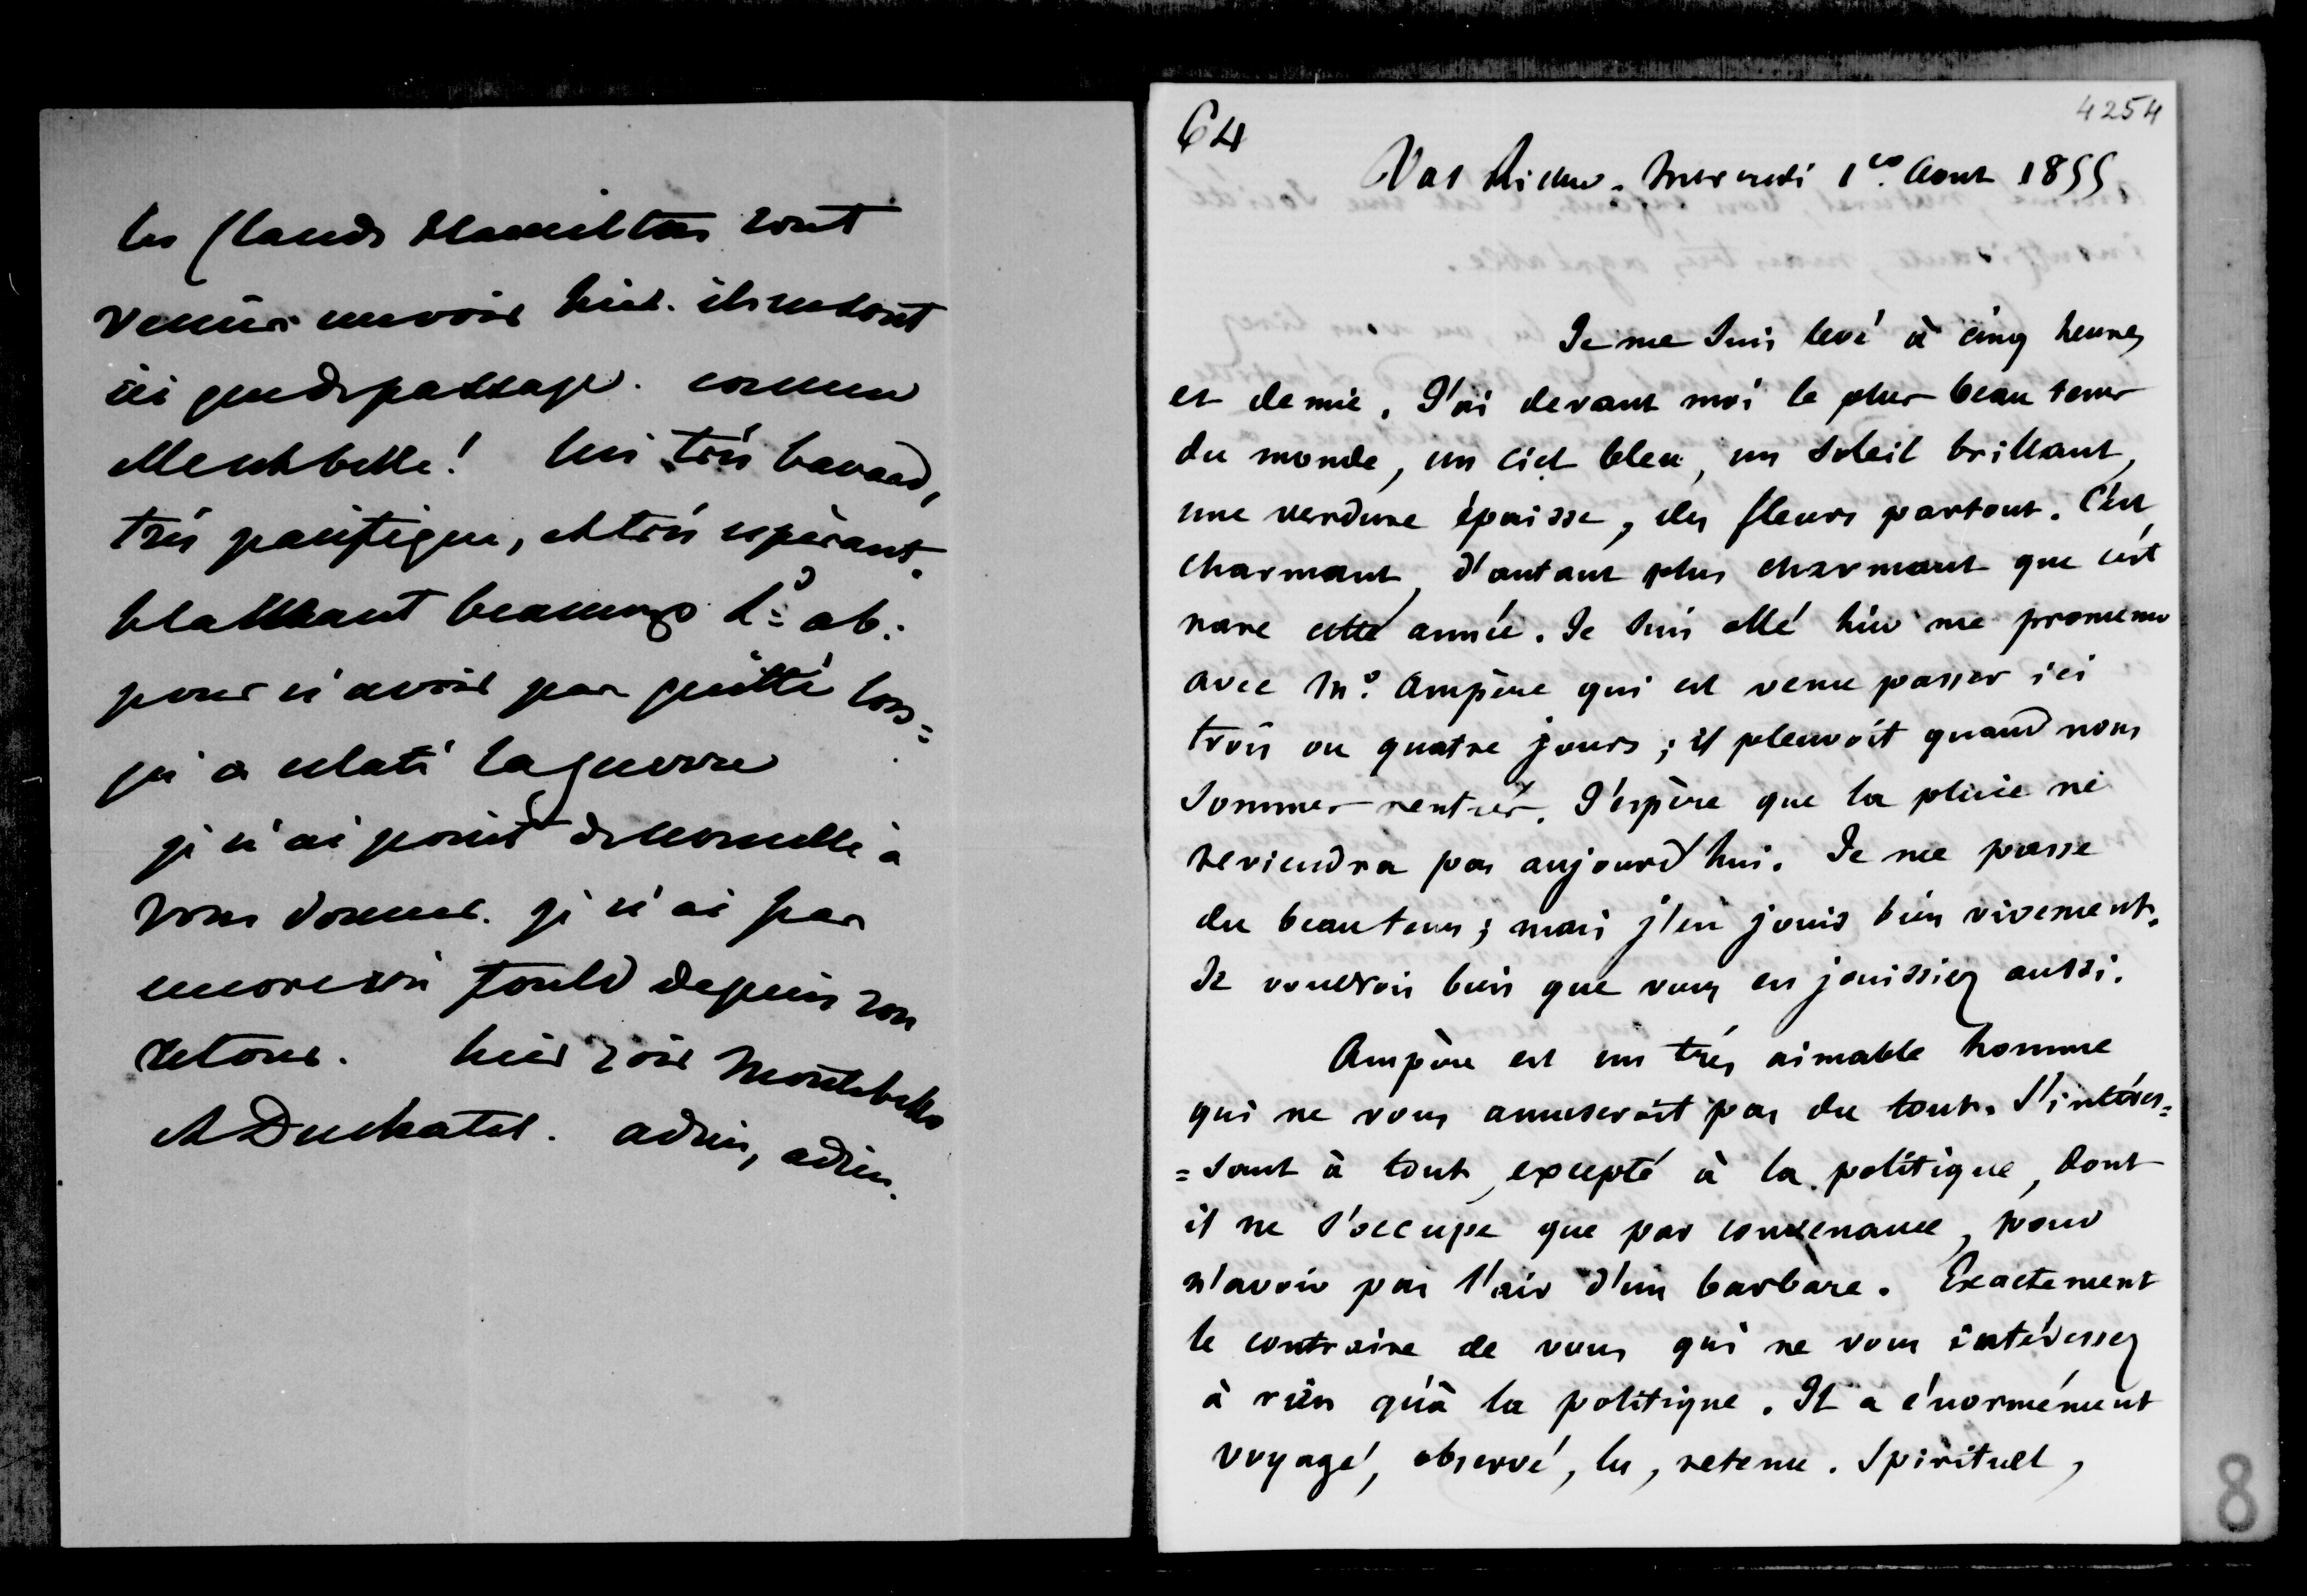 les Claud Hamilton sont
venus me voir hier. ils ne sont
ici qu'en passage. comme
elle est belle! lui très bavard,
très pacifique, et très espérant.
blâmant beaucoup L. ab.
pour n'avoir pas quitté lors=
qu'a éclaté la guerre
je n'ai point de nouvelle à
vous donner. je n'ai pas
encore vu Fould depuis son
retour. hier soir Montebello
et Duchatel. adieu, adieu.
64
4254
Val Richer. Mercredi 1er Aout 1855
Je me suis levé à cinq heures
et demie. J'ai devant moi le plus beau tems
du monde, un ciel bleu, un soleil brillant,
une verdure épaisse, des fleurs partout. C'est
charmant, d'autant plus charmant que c'est
rare cette année. Je suis allé hier me promener
avec Mr. Ampère qui est venu passer ici
trois ou quatre jours; il pleuvoit quand nous
sommes rentrés. J'espère que la pluie ne
reviendra pas aujourd'hui. Je me passe
du beau tems; mais j'en jouis bien vivement.
Je voudrois bien que vous en jouissiez aussi.
Ampère est un très aimable homme
qui ne vous amuseroit pas du tout. S'intéres=
=sant à tout, excepté à la politique, dont
il ne s'occupe que par convenance, pour
n'avoir pas l'air d'un barbare. Exactement
le contraire de vous qui ne vous intéressez
à rien qu'à la politique. Il a énormément
voyagé, observé, lu, retenu. Spirituel,
8